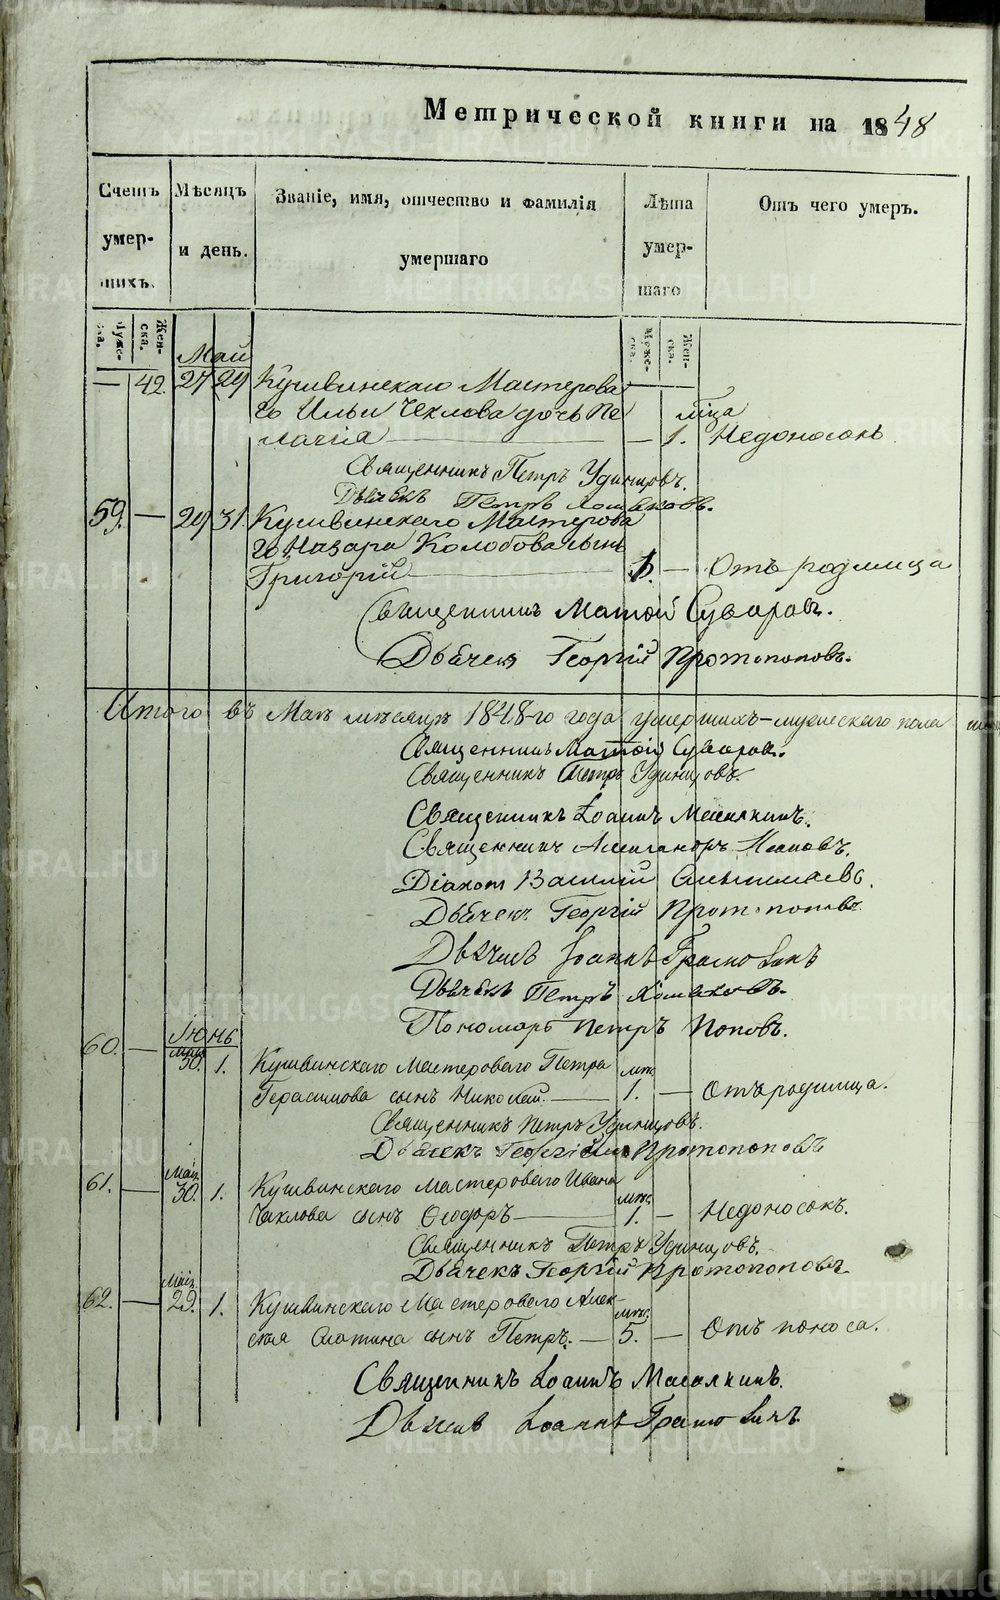 Метрической книги на 1848
Счетъ умер-шихъ.
Мѣсяцъ и день.
Званіе, имя, отчество и фамилія умершаго
Лѣта умер-шаго
Отъ чего умеръ.
Муже-ска.
Жен-ска.
Муже-ска.
Жен-ска.
Май
— 42. 27 29 Кушвинскаго Мастерова
го Ильи Чеклова дочь Пе
лагія — 1. Недоносокъ
Священникъ Петръ Удинцовъ.
Дьячекъ Петръ Хомяковъ.
59. — 29 31 Кушвинскаго Мастерова
го Назара Колобова сынъ
Григорій — 1. — Отъ родимца
Священникъ Матѳій Суворовъ.
Дьячекъ Георгій Протопоповъ.
Итого въ Маѣ мѣсяцѣ 1848-го года умершихъ мужескаго пола
Священникъ Матѳій Суворовъ.
Священникъ Петръ Удинцовъ.
Священникъ Іоаннъ
Священникъ Александръ Поповъ.
Діаконъ Василій
Дьячекъ Георгій Протопоповъ
Дьячекъ Іоаннъ
Дьячекъ Петръ Хомяковъ.
Пономарь Петръ Поповъ.
Іюнь
60. — мая 30. 1. Кушвинскаго Мастероваго Петра мѣс.
Герасимова сынъ Николай. — 1. — Отъ родимца.
Священникъ Петръ Удинцовъ.
Дьячекъ Георгій Протопоповъ
61. — мая 30. 1. Кушвинскаго Мастероваго Ивана мѣс.
Чаклова сынъ Ѳеодоръ — 1. — Недоносокъ.
Священникъ Петръ Удинцовъ.
Дьячекъ Георгій Протопоповъ
62. — мая 29. 1. Кушвинскаго Мастероваго Алек- мѣс.
сѣя сынъ Петръ. — 5. — Отъ поноса.
Священникъ Іоаннъ
Дьячекъ Іоаннъ
METRIKI.GASO-URAL.RU